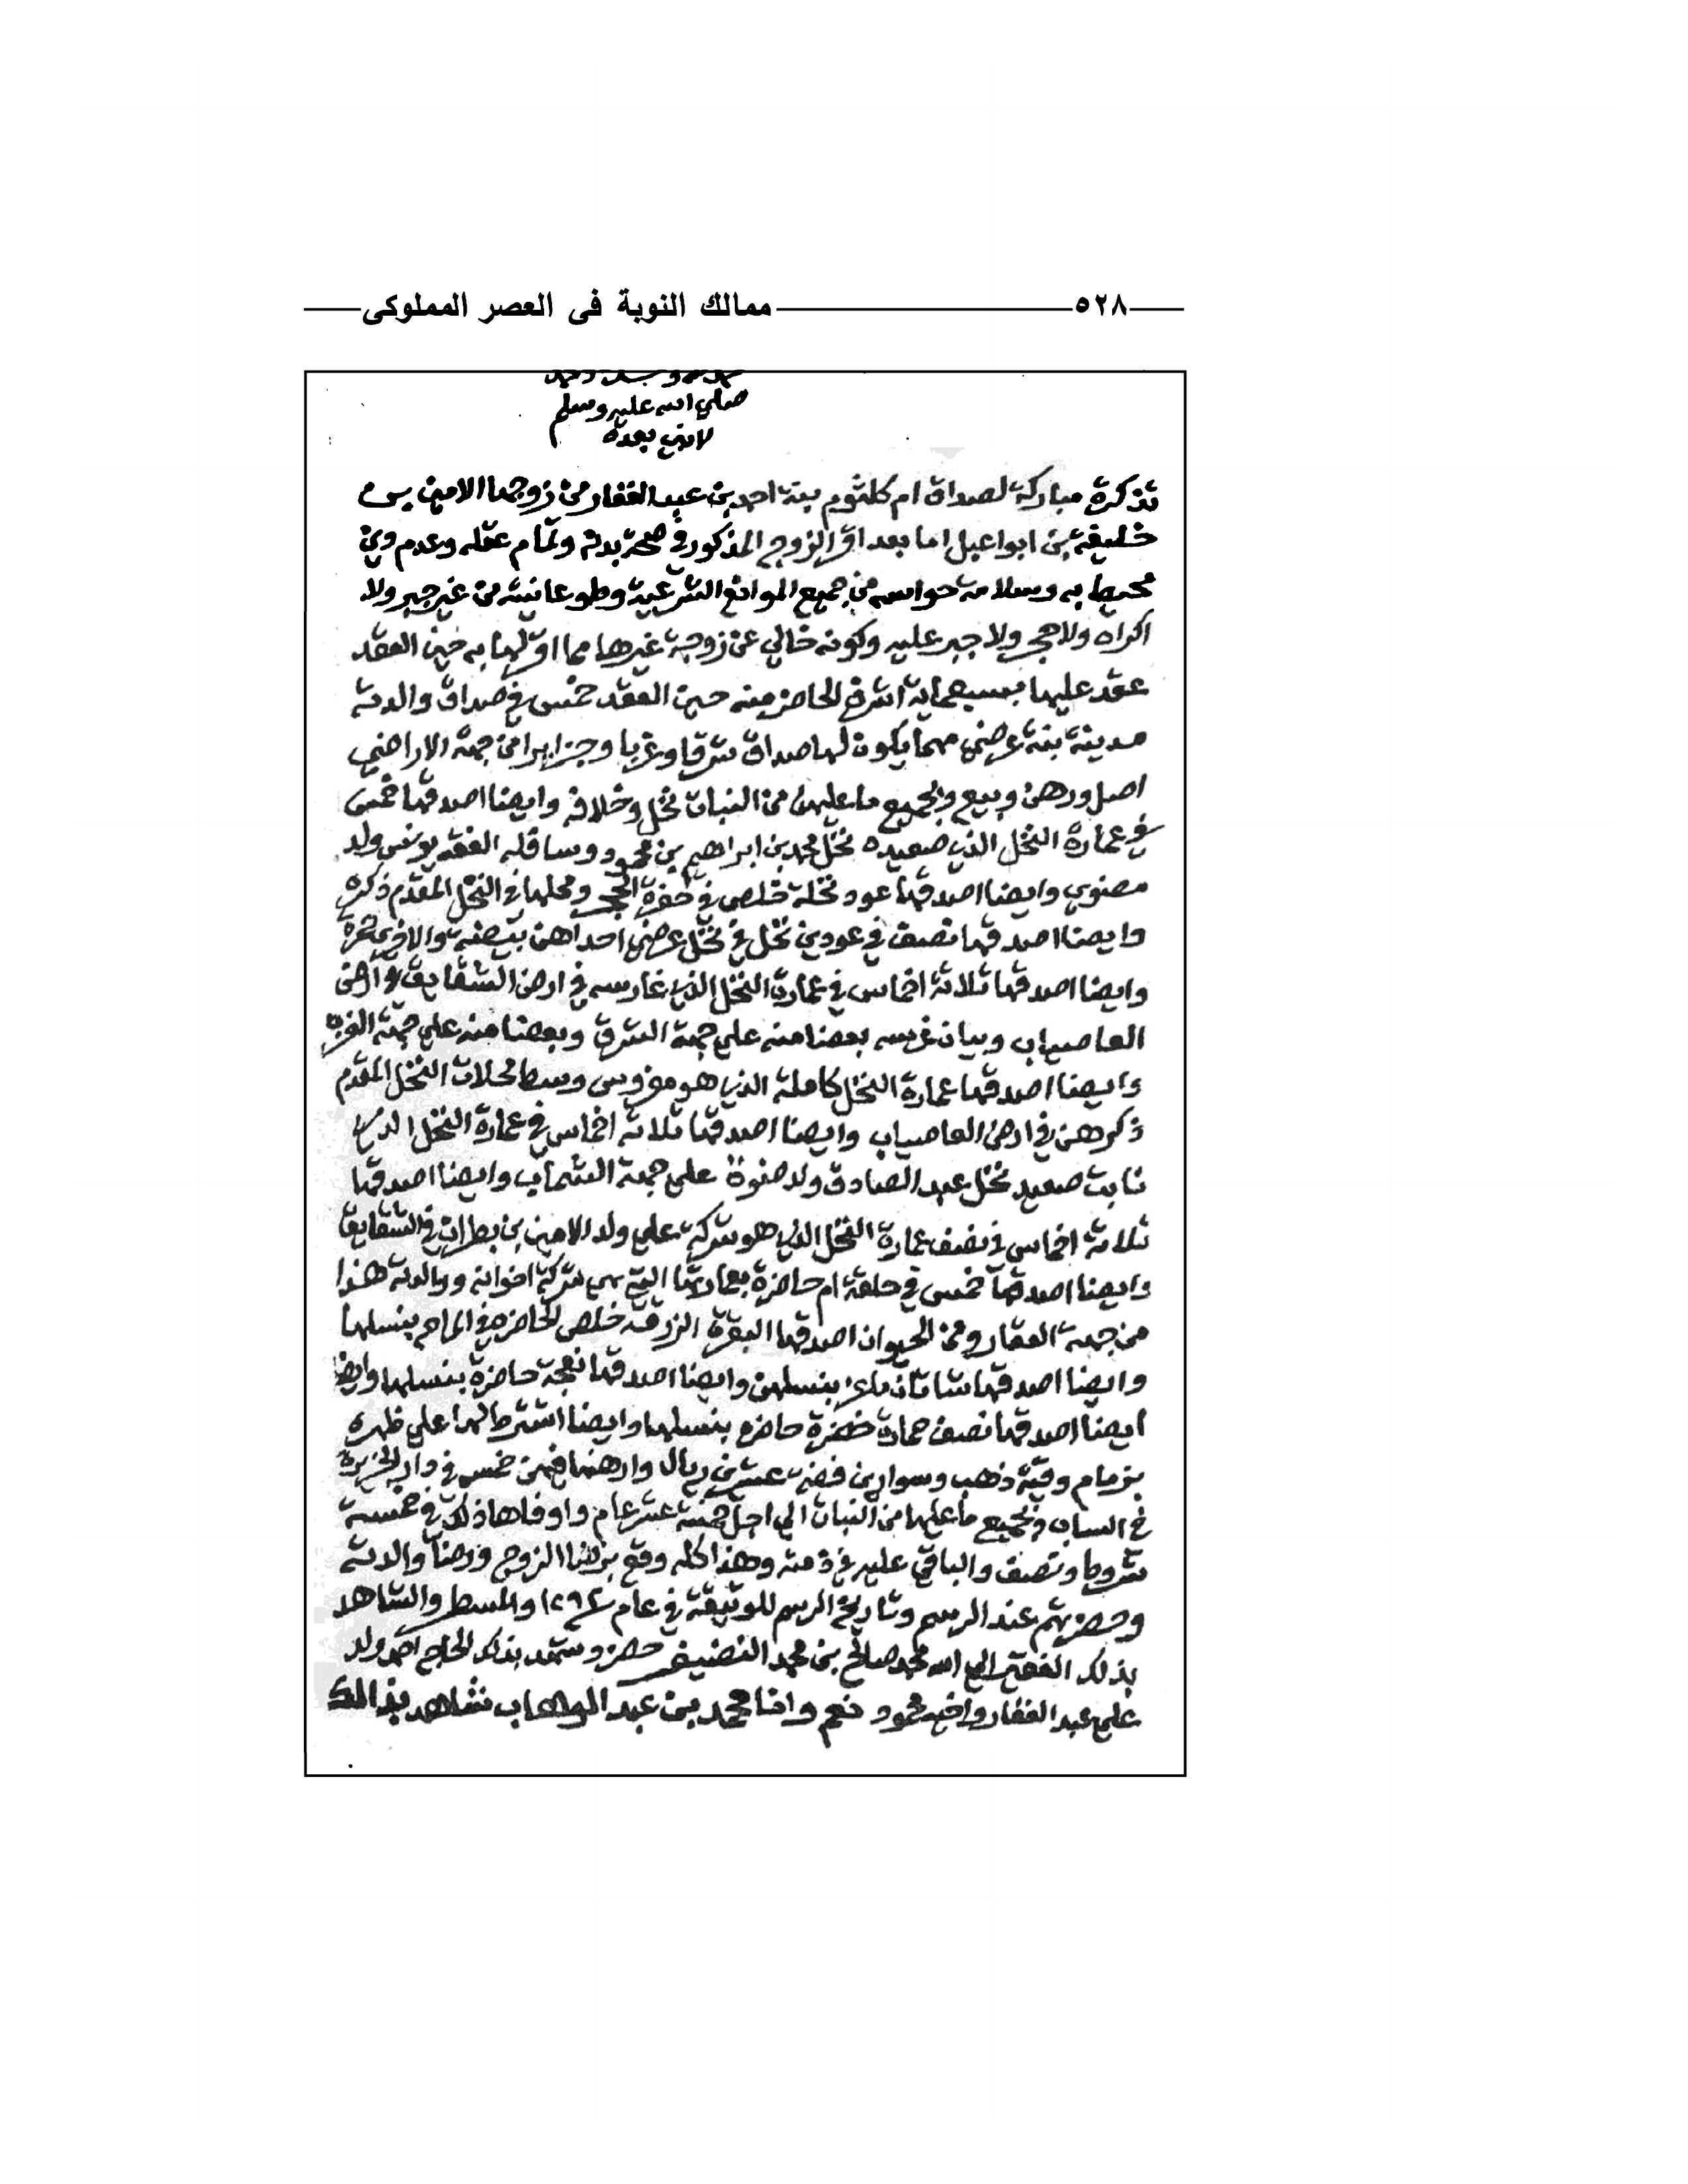 ٥٢٨ ممالك النوبة فى العصر المملوكى
صلي الله عليه وسلم
لا نبي بعده
تذكرة مباركة لصداق ام كلثوم بنة احمد بن عبد الغفار من زوجها الامين بن
خليفة بن ابو اعيل اما بعد اقر الزوج المذكور في صحة بدنه وتمام عقله وعدم دين
محيط به وسلامة حواسه من جميع الموانع الشرعية وطوعانيته من غير جبر ولا
اكراه ولا حجر ولا جبر عليه وكونه خالي عن زوجة غيرها مما اقر لها به حين العقد
عقد عليها بسبعماية اشرفي الحاضر منه حين العقد خمس في صداق والدته
مدينة بنة عرضي مهما يكون لها صداق شرقا وغربا وجزايرا من جهة الاراضي
اصل ورهن وبيع وبجميع ما عليهن من النبات نخل وخلافه وايضا اصدقها خمس
في عمارة النخل الذي صعيده نخل محمد بن ابراهيم بن محمود وسافله الفقه يونس ولد
مصنوي وايضا اصدقها عود نخلة خلص في حفرة الحجر ومحلها في النخل المقدم ذكره
وايضا اصدقها نصف في عودين نخل في نخل عرضي احداهن بتيضة والاخرى
وايضا اصدقها ثلاثة اخماس في عمارة النخل الذي غارسه في ارض الشقايق وارض
العاصياب وبيان غرسه بعضا منه علي جهة الشرق وبعضا منه علي جهة الغرب
وايضا اصدقها عمارة النخل كاملة الذي هو مغروس وسط محلات النخل المقدم
ذكرهن في ارض العاصياب وايضا اصدقها ثلاثة اخماس في عمارة النخل الذي
نابت صعيد نخل عبد الصادق ولد حنوة علي جهة الشمال وايضا اصدقها
ثلاثة اخماس في نصف عمارة النخل الذي هو شركة علي ولد الامين بن بطران في الشقايق
وايضا اصدقها خمس في حلقة ام حاضرة بعمارتها التي هي شركة اخوانه ووالدته هذا
من جهة العقار ومن الحيوان اصدقها البقرة الزرقة خلص الحاضرة في المراح بنسلها
وايضا اصدقها شاتان بنسلهن وايضا اصدقها نعجة حاضرة بنسلها وايضا
ايضا اصدقها نصف حمارة خضرة حاضره بنسلها وايضا اشترط لها علي ظهره
بزمام وقية ذهب وسوارين فضة عشرين ريال وارهنها فيهن خمس في دار الجزيرة
في الساب وبجميع ما عليها من النبات الي اجل خمسة عشر عام واوفاها ذلك في خمسة
شروط ونصف والباقي عليه في ذمته وهذا كله وقع برضا الزوج ورضا والدته
وحضرتهم عند الرسم وتاريخ الرسم للوثيقة في عام ١٢٩٣ والمسطر والشاهد
بذلك الفقير الي الله محمد صالح بن محمد النضيف حضر وشهد بذلك الحاج احمد ولد
علي عبد الغفار واخيه محمود نعم وانا محمد بن عبد الوهاب نشاهد بذالك